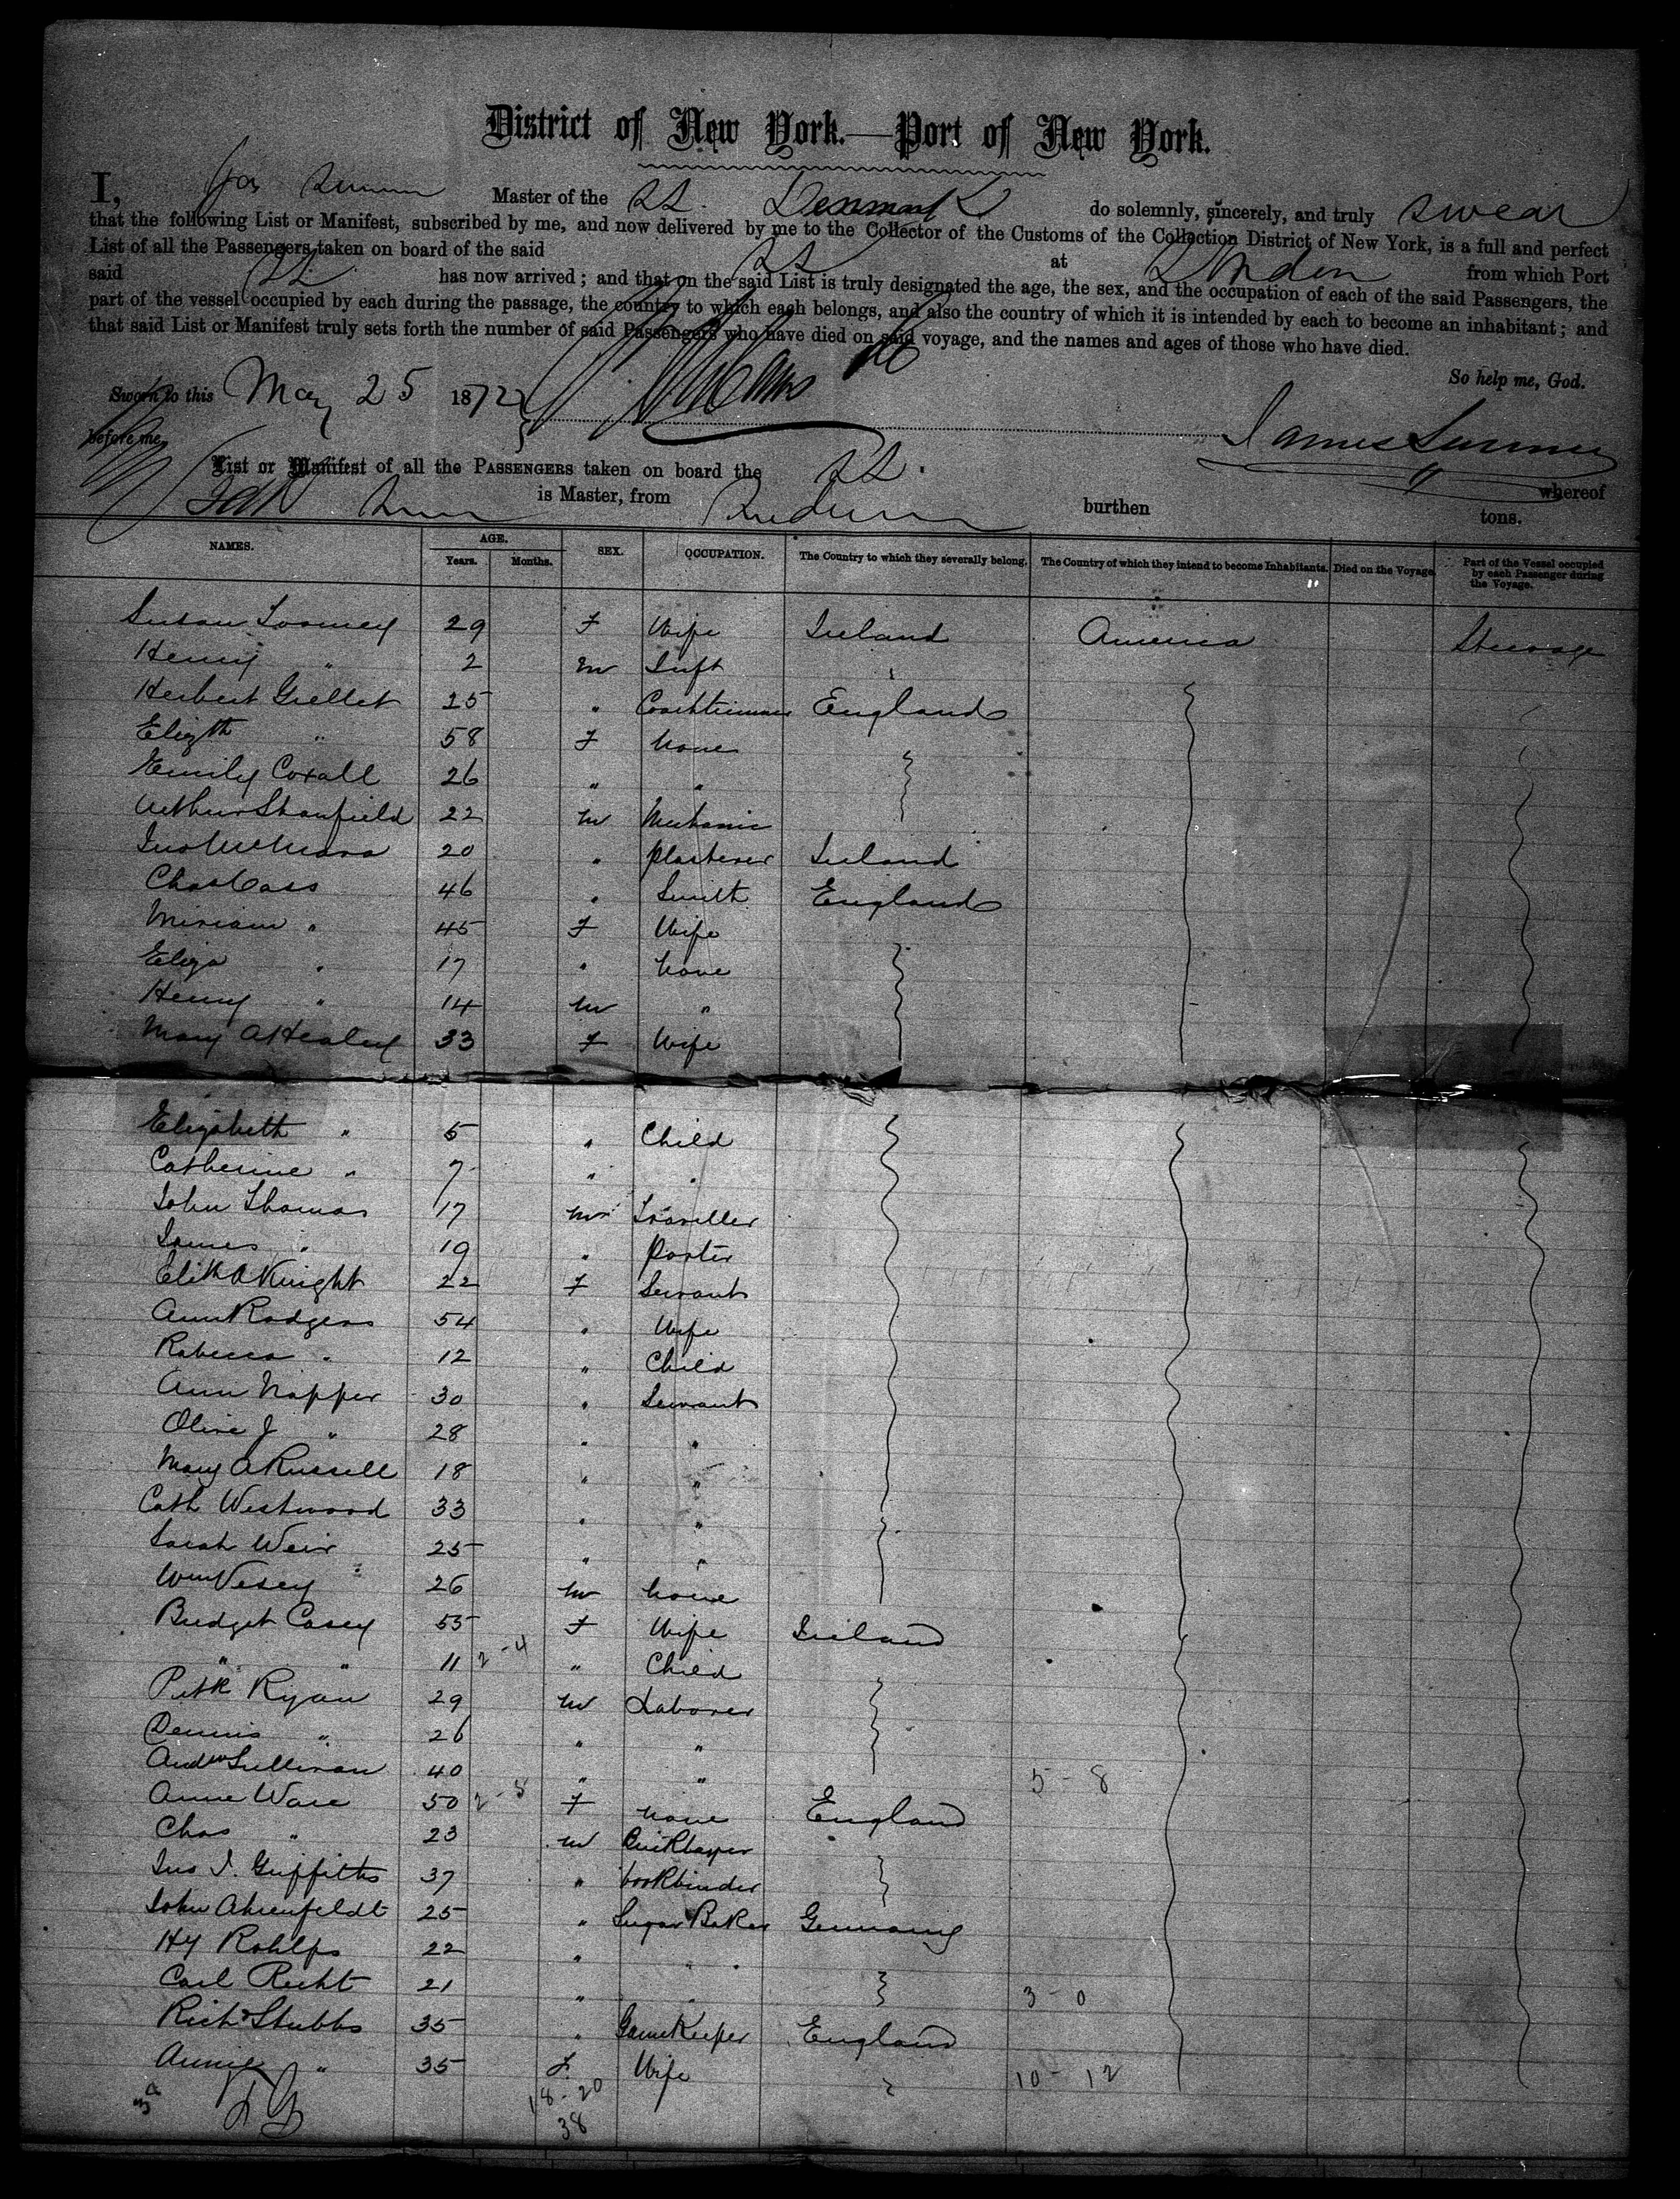 District of New York.—Port of New York.
I, Jas Master of the SS. Denmark do solemnly, sincerely, and truly swear
that the following List or Manifest, subscribed by me, and now delivered by me to the Collector of the Customs of the Collection District of New York, is a full and perfect
List of all the Passengers taken on board of the said SS at London from which Port
said SS. has now arrived; and that on the said List is truly designated the age, the sex, and the occupation of each of the said Passengers, the
part of the vessel occupied by each during the passage, the country to which each belongs, and also the country of which it is intended by each to become an inhabitant; and
that said List or Manifest truly sets forth the number of said Passengers who have died on said voyage, and the names and ages of those who have died.
So help me, God.
Sworn to this May 25 1872
before me, James
List or Manifest of all the PASSENGERS taken on board the SS. whereof
is Master, from burthen tons.
NAMES. AGE. SEX. OCCUPATION. The Country to which they severally belong. The Country of which they intend to become Inhabitants. Died on the Voyage. Part of the Vessel occupied by each Passenger during the Voyage.
Years. Months.
Susan Toomey 29 F Wife Ireland America Steerage
Henry " 2 M Inft
Herbert Grellet 25 " Coachtrimmer England
Elizth " 58 F none
Emily Coxall 26 " "
Arthur Stanfield 22 M Mechanic
20 " plasterer Ireland
Chas Cass 46 " Smith England
Miriam " 45 F Wife
Eliza " 17 " none
Henry " 14 M "
Mary A Healey 33 F Wife
Elizabeth " 5 " Child
Catherine " 7 " "
John Thomas 17 M Traveller
James " 19 " Porter
Elith A Knight 22 F Servant
Ann Rodgers 54 " Wife
Rebecca " 12 " Child
Ann Napper 30 " Servant
Olive J " 28 " "
Mary A Russell 18 " "
Cath Westwood 33 " "
Sarah Weir 25 " "
Wm Vesey 26 M none
Bridget Casey 55 F Wife Ireland
" " 11 2-4 " Child
Patk Ryan 29 M Laborer
Dennis " 26 " "
Andw Sullivan 40 " " 5-8
Anne Ware 50 2-8 F none England
Chas " 23 M Bricklayer
Jno J. Griffiths 37 " bookbinder
John Ahrenfeldt 25 " Sugar Baker Germany
Hy Rohlfs 22 " "
Carl Recht 21 " " 3-0
Richd Stubbs 35 " GameKeeper England
Annie " 35 F Wife 10-12
18-20
38